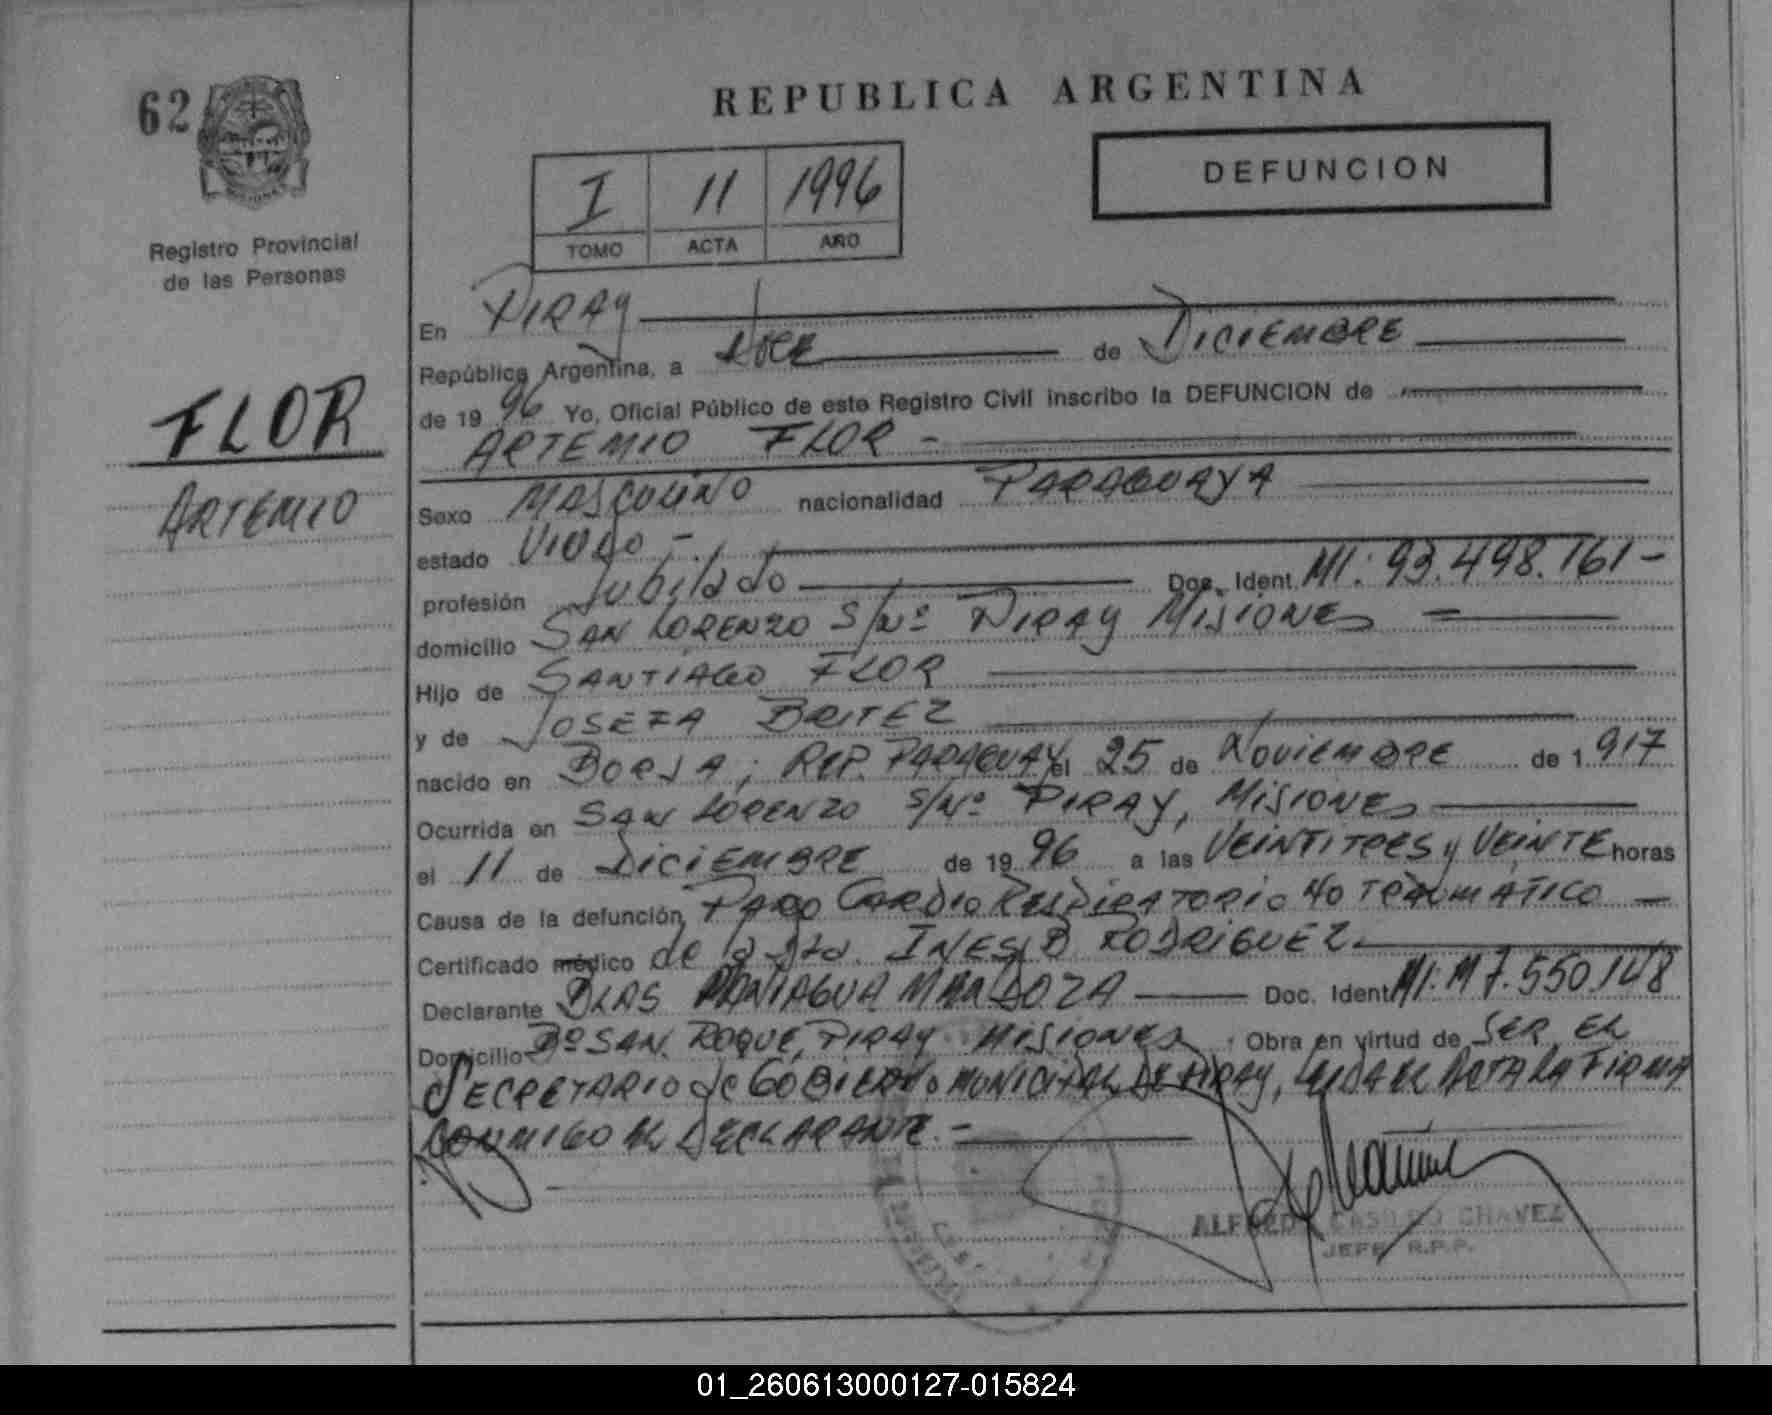 62
REPUBLICA ARGENTINA
DEFUNCION
I 11 1996
TOMO ACTA AÑO
Registro Provincial
de las Personas
FLOR
ARTEMIO
En PIRAY
República Argentina, a doce de DICIEMBRE
de 1996 Yo, Oficial Público de este Registro Civil inscribo la DEFUNCION de
ARTEMIO FLOR -
Sexo MASCULINO nacionalidad PARAGUAYA
estado VIUDO -
profesión Jubilado Doc. Ident. MI: 93.498.161-
domicilio SAN LORENZO S/Nº PIRAY MISIONES
Hijo de SANTIAGO FLOR
y de JOSEFA BRITEZ
nacido en BORJA, REP. PARAGUAY el 25 de NOVIEMBRE de 1.917
Ocurrida en SAN LORENZO S/Nº PIRAY, MISIONES
el 11 de DICIEMBRE de 1996 a las VEINTITRES y VEINTE horas
Causa de la defunción PARO CARDIO RESPIRATORIO NO TRAUMATICO
Certificado médico de la INES B RODRIGUEZ.
Declarante BLAS PANIAGUA MENDOZA Doc. Ident. MI: M 7.550.148
Domicilio Bº SAN ROQUE, PIRAY MISIONES Obra en virtud de SER EL
SECRETARIO de GOBIERNO MUNICIPAL DE PIRAY, LEIDA EL ACTA LA FIRMA
CONMIGO EL DECLARANTE. -
ALFREDO CASILDO CHAVEZ
JEFE R.P.P.
01_260613000127-015824